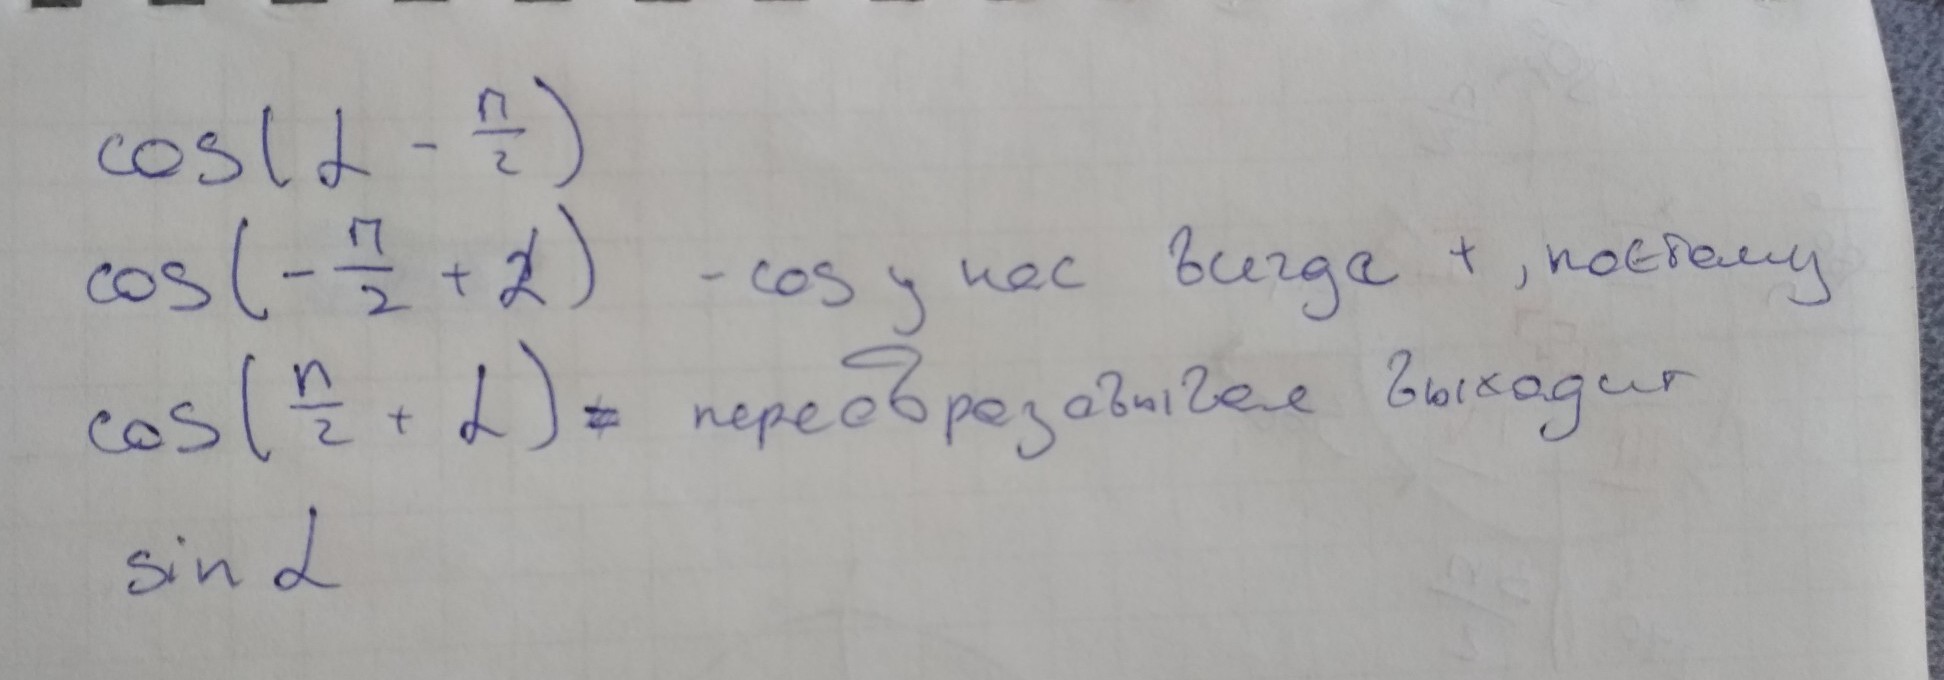 cos(α - п/2)
cos(-п/2 + α) - cos у нас всегда +, поэтому
cos(п/2 + α) = переобразовывая выходит
sin α